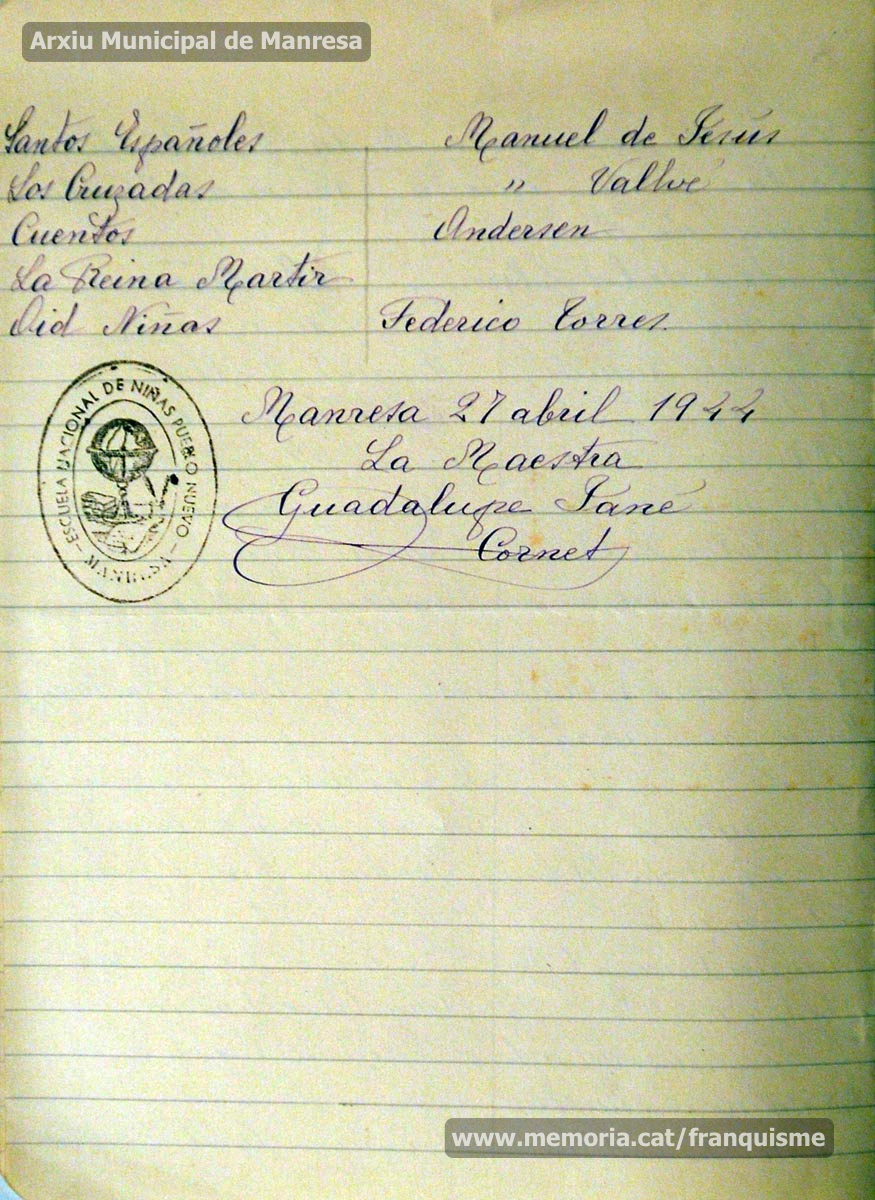 Arxiu Municipal de Manresa
Santos Españoles Manuel de Jesús
Los Cruzadas " Vallvé
Cuentos Andersen
La Reina Martir
Oid Niñas Federico Torres.
ESCUELA NACIONAL DE NIÑAS PUEBLO NUEVO
MANRESA
Manresa 27 abril 1944
La Maestra
Guadalupe Jané
Cornet
www.memoria.cat/franquisme